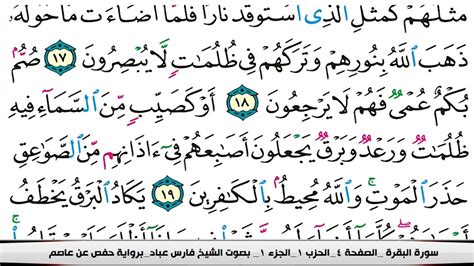 مَثَلُهُمْ كَمَثَلِ ٱلَّذِى ٱسْتَوْقَدَ نَارًا فَلَمَّآ أَضَآءَتْ مَا حَوْلَهُۥ
ذَهَبَ ٱللَّهُ بِنُورِهِمْ وَتَرَكَهُمْ فِى ظُلُمَٰتٍ لَّا يُبْصِرُونَ ١٧ صُمٌّۢ
بُكْمٌ عُمْىٌ فَهُمْ لَا يَرْجِعُونَ ١٨ أَوْ كَصَيِّبٍ مِّنَ ٱلسَّمَآءِ فِيهِ
ظُلُمَٰتٌ وَرَعْدٌ وَبَرْقٌ يَجْعَلُونَ أَصَٰبِعَهُمْ فِىٓ ءَاذَانِهِم مِّنَ ٱلصَّوَٰعِقِ
حَذَرَ ٱلْمَوْتِ ۚ وَٱللَّهُ مُحِيطٌۢ بِٱلْكَٰفِرِينَ ١٩ يَكَادُ ٱلْبَرْقُ يَخْطَفُ
سورة البقرة_الصفحة ٤_الحزب ١_الجزء ١_ بصوت الشيخ فارس عباد_برواية حفص عن عاصم